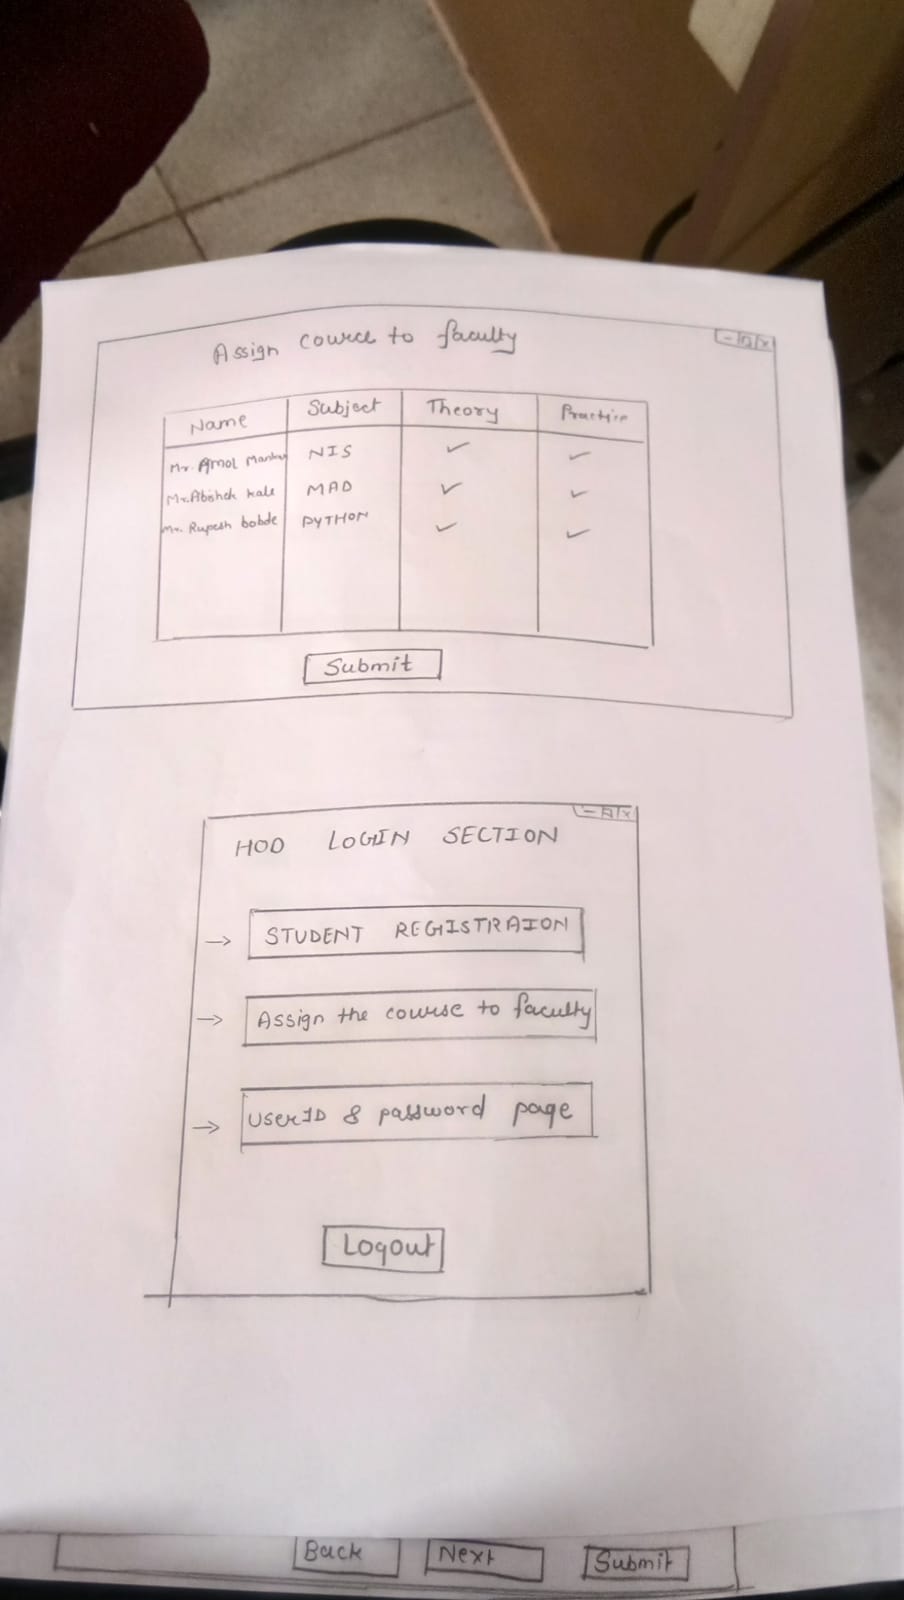 Assign cource to faculty
Name Subject Theory Practice
Mr. Amol NIS ✓ ✓
Mr. Abishek kale MAD ✓ ✓
Mr. Rupesh bobde PYTHON ✓ ✓
Submit
HOD LOGIN SECTION
→ STUDENT REGISTRAION
→ Assign the course to faculty
→ UserID & password page
Logout
Back Next Submit